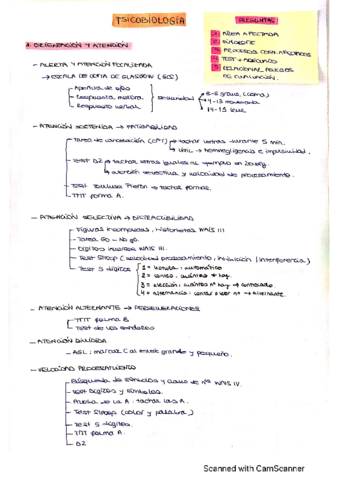 PSICOBIOLOGÍA
PREGUNTAS
1. ÁREA AFECTADA
3. PROCESOS COGN. AFECTADOS
4. TEST + ADECUADO
5. RELACIONAR PRUEBAS
1. ORIENTACIÓN Y ATENCIÓN
- ALERTA Y ATENCIÓN FOCALIZADA
→ ESCALA DE COMA DE GLASGOW (GCS)
Apertura de ojos
Respuesta motora
Respuesta verbal
3-8 grave (coma)
moderada
leve
- ATENCIÓN SOSTENIDA → FATIGABILIDAD
Tarea de cancelación (CPT) → tachar letras durante 5 min.
→ útil → heminegligencia e impulsividad.
TEST D2 → tachar letras iguales al
→ atención selectiva y velocidad de procesamiento.
Test Toulouse Pieron → tachar formas.
TMT forma A.
- ATENCIÓN SELECTIVA → DISTRACTIBILIDAD
Figuras incompletas, Historietas WAIS III
Tarea Go - No go.
Dígitos inversa WAIS III.
Test Stroop (velocidad procesamiento, inhibición / interferencia)
Test 5 dígitos
1 = lectura: automático
2 = conteo, cuántos * hay.
3 = elección: cuántos nº hay → controlado.
4 = alternancia: contar o leer nº → alternante.
- ATENCIÓN ALTERNANTE → PERSEVERACIONES
TMT forma B
Test de los senderos
- ATENCIÓN DIVIDIDA
- VELOCIDAD PROCESAMIENTO
Búsqueda de símbolos y clave de nº WAIS IV.
Test Dígitos y símbolos.
Prueba de la A: tachar las A.
Test Stroop (color y palabra)
Test 5 dígitos.
TMT forma A.
D2
Scanned with CamScanner